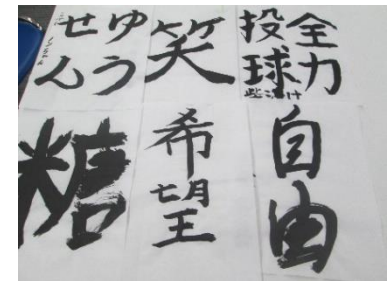 全力
投球
笑
ゆう
せん
自由
希望
糖